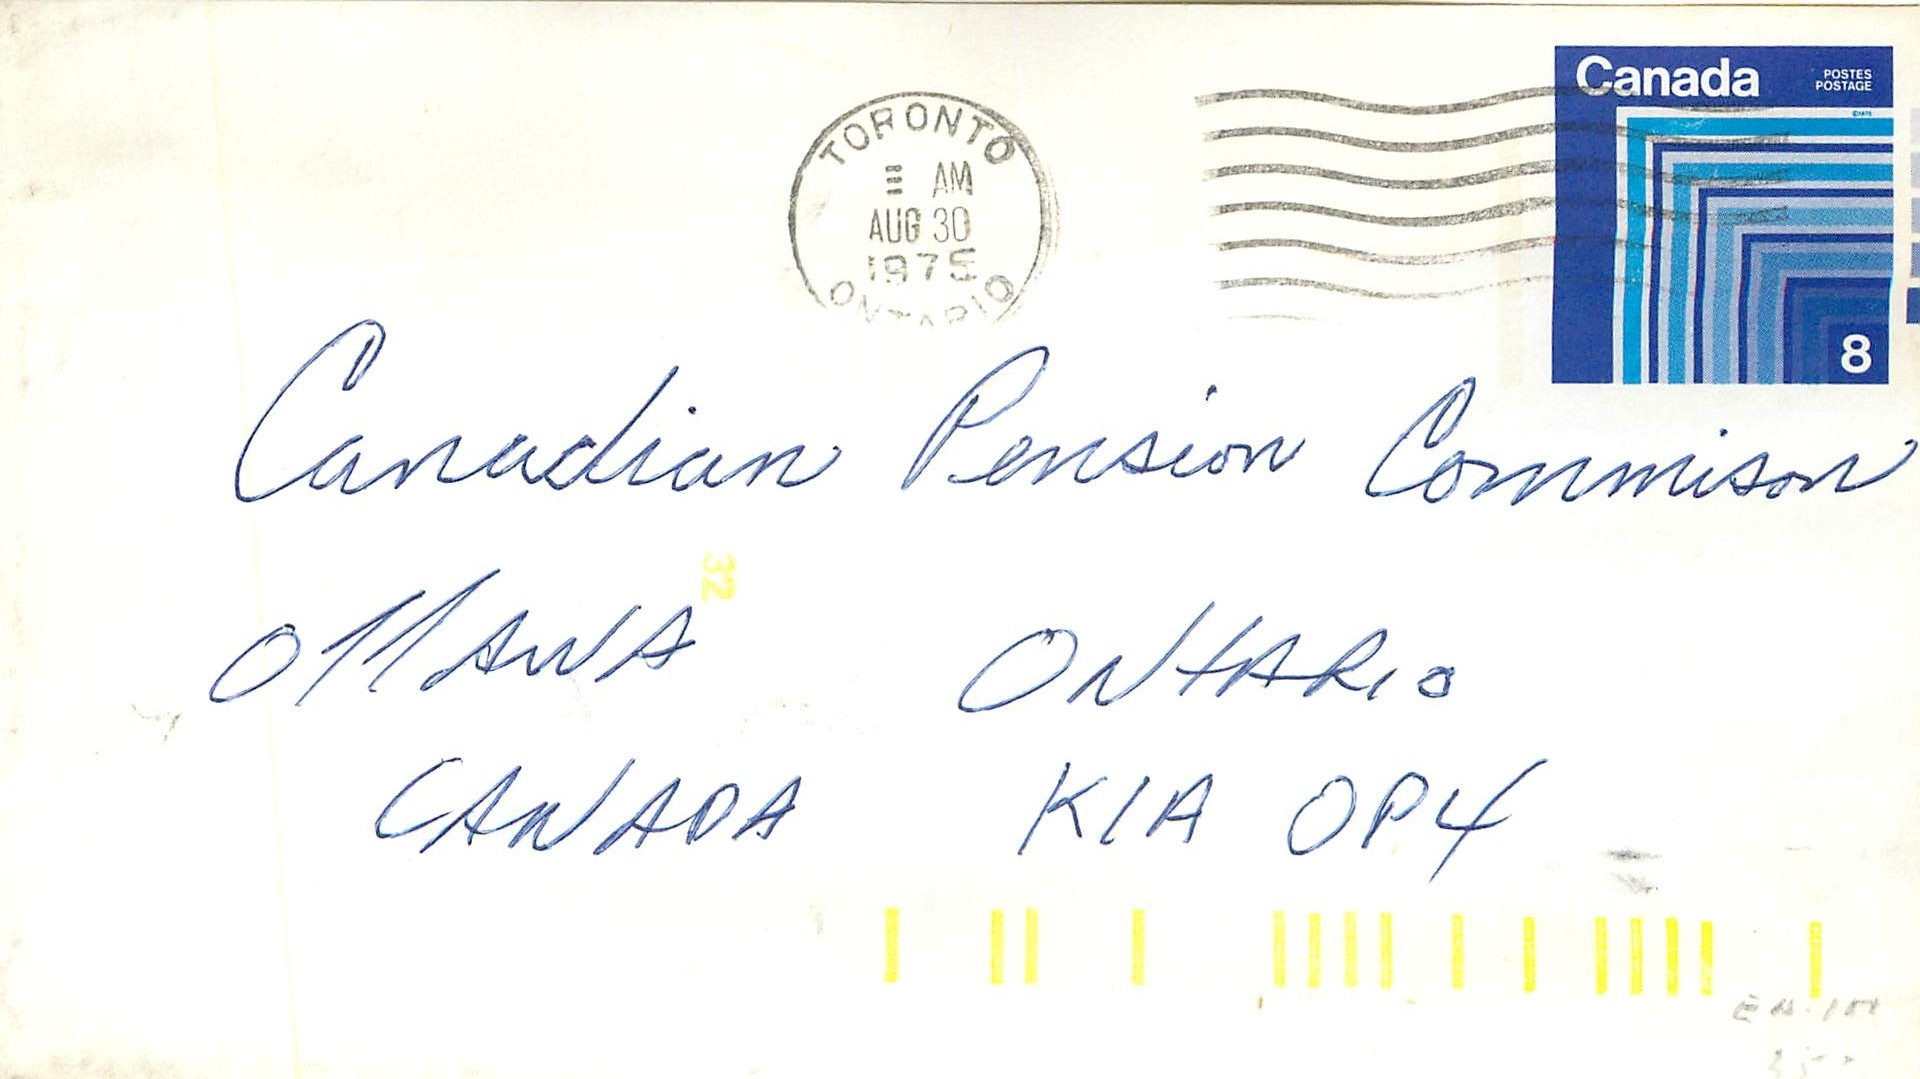 Canada
POSTES
POSTAGE
TORONTO
AM
AUG 30
1975
ONTARIO
8
Canadian Pension Commison
32
OTTAWA ONTARIO
CANADA K1A 0P4